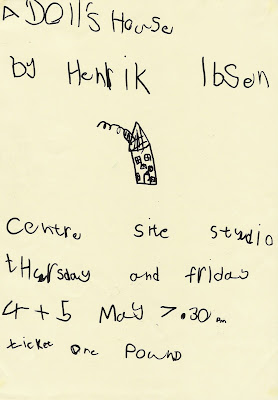 A DOll's House
by Henrik Ibsen
Centre site studio
tHursday and friday
4 + 5 May 7.30 pm
ticket one Pound